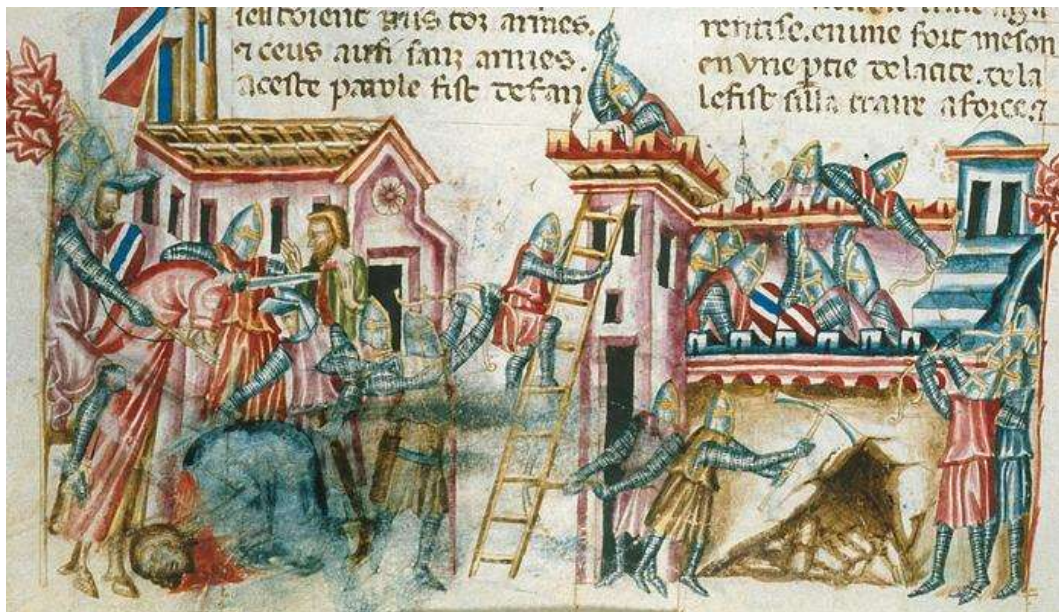 toz armes.
⁊ ceus ausi sanz armes.
A ceste parole fist de san
rentise. en une fort meson
en une ptie de la cite. de la
le fist silla traire a force. ⁊